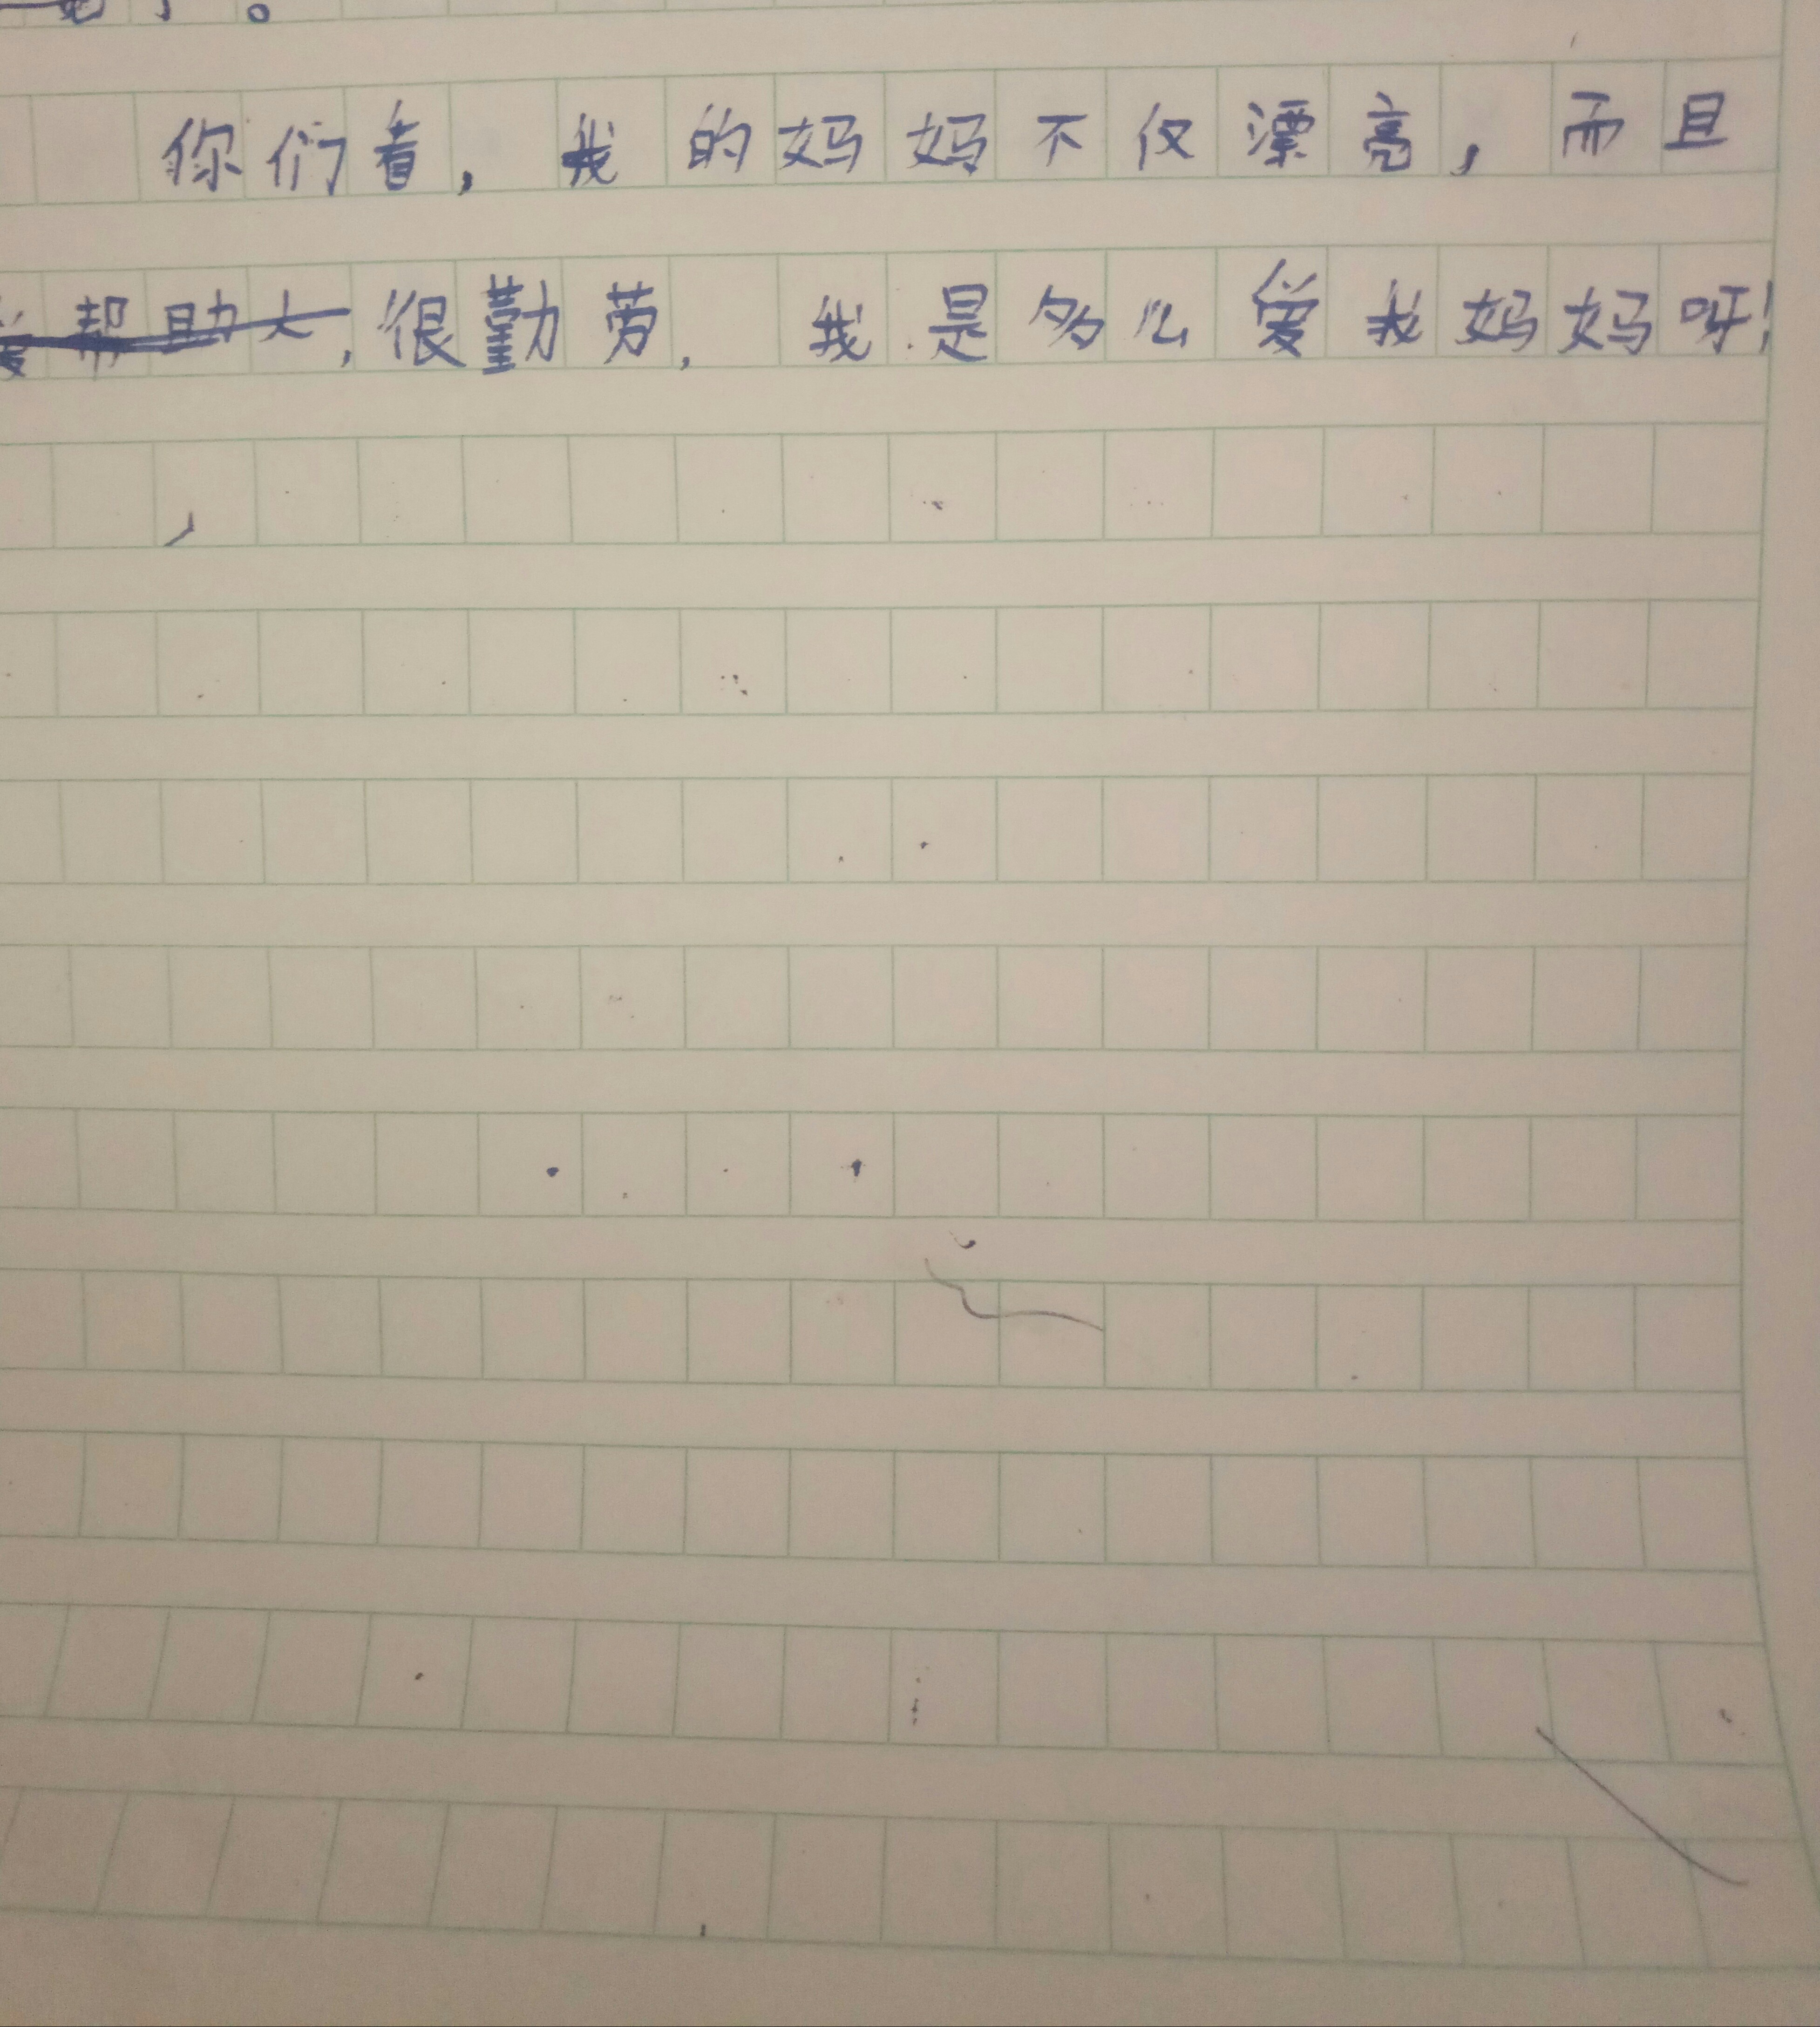 。
你们看，我的妈妈不仅漂亮，而且
爱帮助人，很勤劳，我是多么爱我妈妈呀！